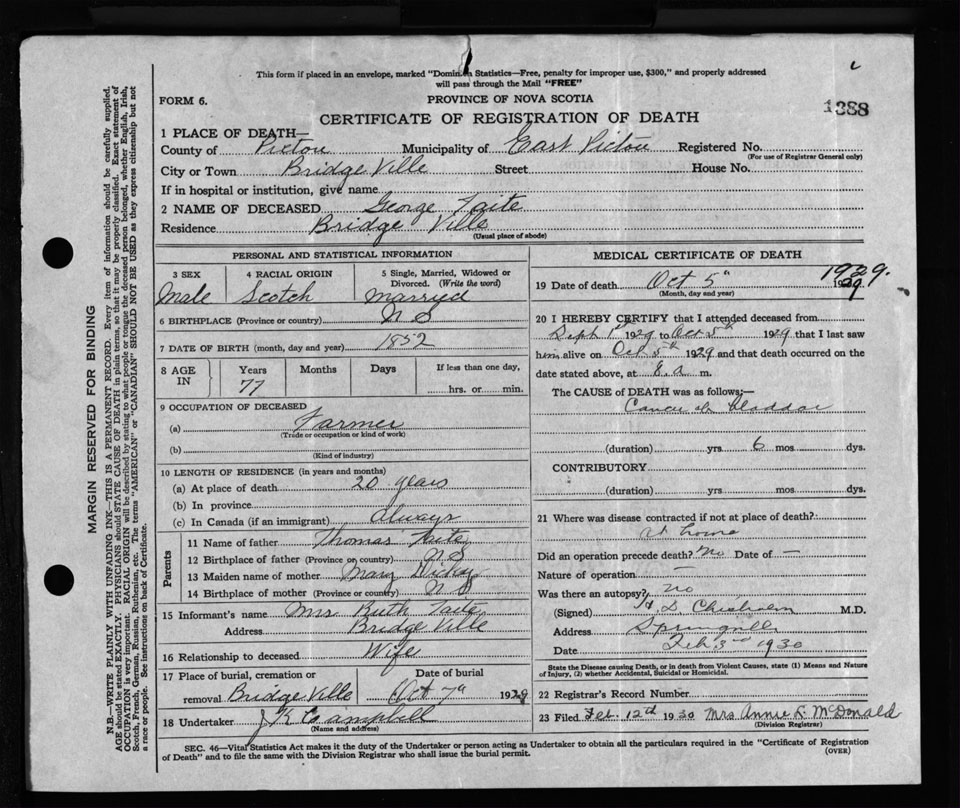 This form if placed in an envelope, marked "Dominion Statistics—Free, penalty for improper use, $300," and properly addressed
will pass through the Mail "FREE"
FORM 6.
PROVINCE OF NOVA SCOTIA
1388
CERTIFICATE OF REGISTRATION OF DEATH
1 PLACE OF DEATH—
County of Pictou Municipality of East Pictou Registered No.
(For use of Registrar General only)
City or Town Bridge Ville Street House No.
If in hospital or institution, give name
2 NAME OF DECEASED George Taite
Residence Bridge Ville
(Usual place of abode)
MARGIN RESERVED FOR BINDING
N.B.—WRITE PLAINLY WITH UNFADING INK—THIS IS A PERMANENT RECORD. Every item of information should be carefully supplied.
AGE should be stated EXACTLY. PHYSICIANS should STATE CAUSE OF DEATH in plain terms, so that it may be properly classified. Exact statement of
OCCUPATION is very important. RACIAL ORIGIN will be described by stating to what people or tongue the deceased person belonged, whether English, Irish,
Scotch, French, German, Russian, Ruthenian, etc. The terms "AMERICAN" or "CANADIAN" SHOULD NOT BE USED as they express citizenship but not
a race or people. See instructions on back of Certificate.
PERSONAL AND STATISTICAL INFORMATION
3 SEX
Male
4 RACIAL ORIGIN
Scotch
5 Single, Married, Widowed or
Divorced. (Write the word)
Married
6 BIRTHPLACE (Province or country) N S
7 DATE OF BIRTH (month, day and year) 1852
8 AGE IN
Years
77
Months
Days
If less than one day,
hrs. or min.
9 OCCUPATION OF DECEASED
(a) Farmer
(Trade or occupation or kind of work)
(b)
(Kind of industry)
10 LENGTH OF RESIDENCE (in years and months)
(a) At place of death 20 years
(b) In province
(c) In Canada (if an immigrant) always
Parents
11 Name of father Thomas Taite
12 Birthplace of father (Province or country) N S
13 Maiden name of mother Mary
14 Birthplace of mother (Province or country) N S
15 Informant's name Mrs Ruth Taite
Address Bridge Ville
16 Relationship to deceased Wife
17 Place of burial, cremation or
removal Bridge Ville
Date of burial
Oct 7th 1929
18 Undertaker J K Campbell
(Name and address)
MEDICAL CERTIFICATE OF DEATH
19 Date of death Oct 5th 1929.
(Month, day and year)
20 I HEREBY CERTIFY that I attended deceased from
Seph 1st 1929 to Oct 5th 1929 that I last saw
him alive on Oct 5th 1929 and that death occurred on the
date stated above, at 6. a m.
The CAUSE OF DEATH was as follows:—
Cancer de Bladdar
(duration) yrs 6 mos dys.
CONTRIBUTORY
(duration) yrs. mos. dys.
21 Where was disease contracted if not at place of death?
at home
Did an operation precede death? No Date of —
Nature of operation —
Was there an autopsy? no
(Signed) H D Chisholm M.D.
Address Springville
Date Feb 3rd 1930
State the Disease causing Death, or in death from Violent Causes, state (1) Means and Nature
of Injury, (2) whether Accidental, Suicidal or Homicidal.
22 Registrar's Record Number
23 Filed Feb. 12th 1930 Mrs Annie R McDonald
(Division Registrar)
SEC. 46—Vital Statistics Act makes it the duty of the Undertaker or person acting as Undertaker to obtain all the particulars required in the "Certificate of Registration
of Death" and to file the same with the Division Registrar who shall issue the burial permit.
(OVER)